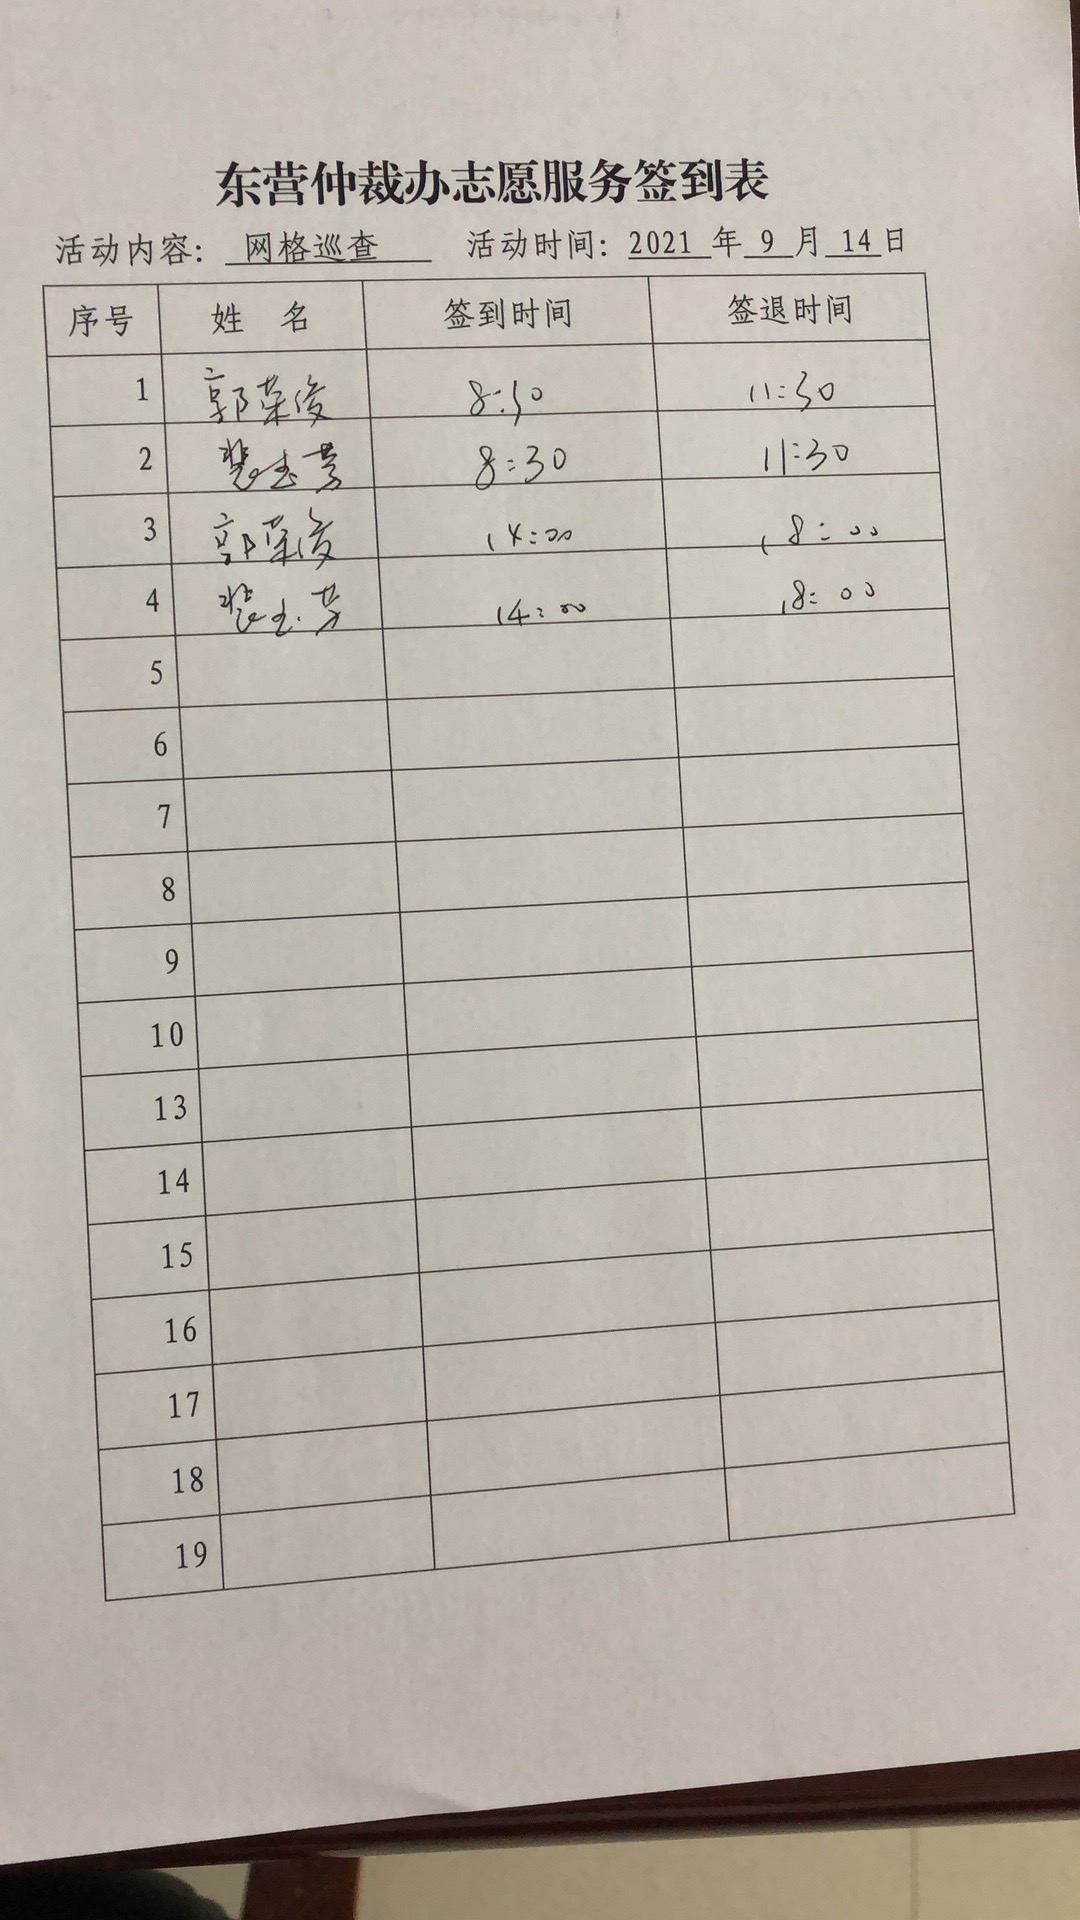 东营仲裁办志愿服务签到表
活动内容: 网格巡查 活动时间: 2021 年 9 月 14 日
序号 姓 名 签到时间 签退时间
1 郭荣俊 8:30 11:30
2 裴玉芳 8:30 11:30
3 郭荣俊 14:00 18:00
4 裴玉芳 14:00 18:00
5
6
7
8
9
10
13
14
15
16
17
18
19